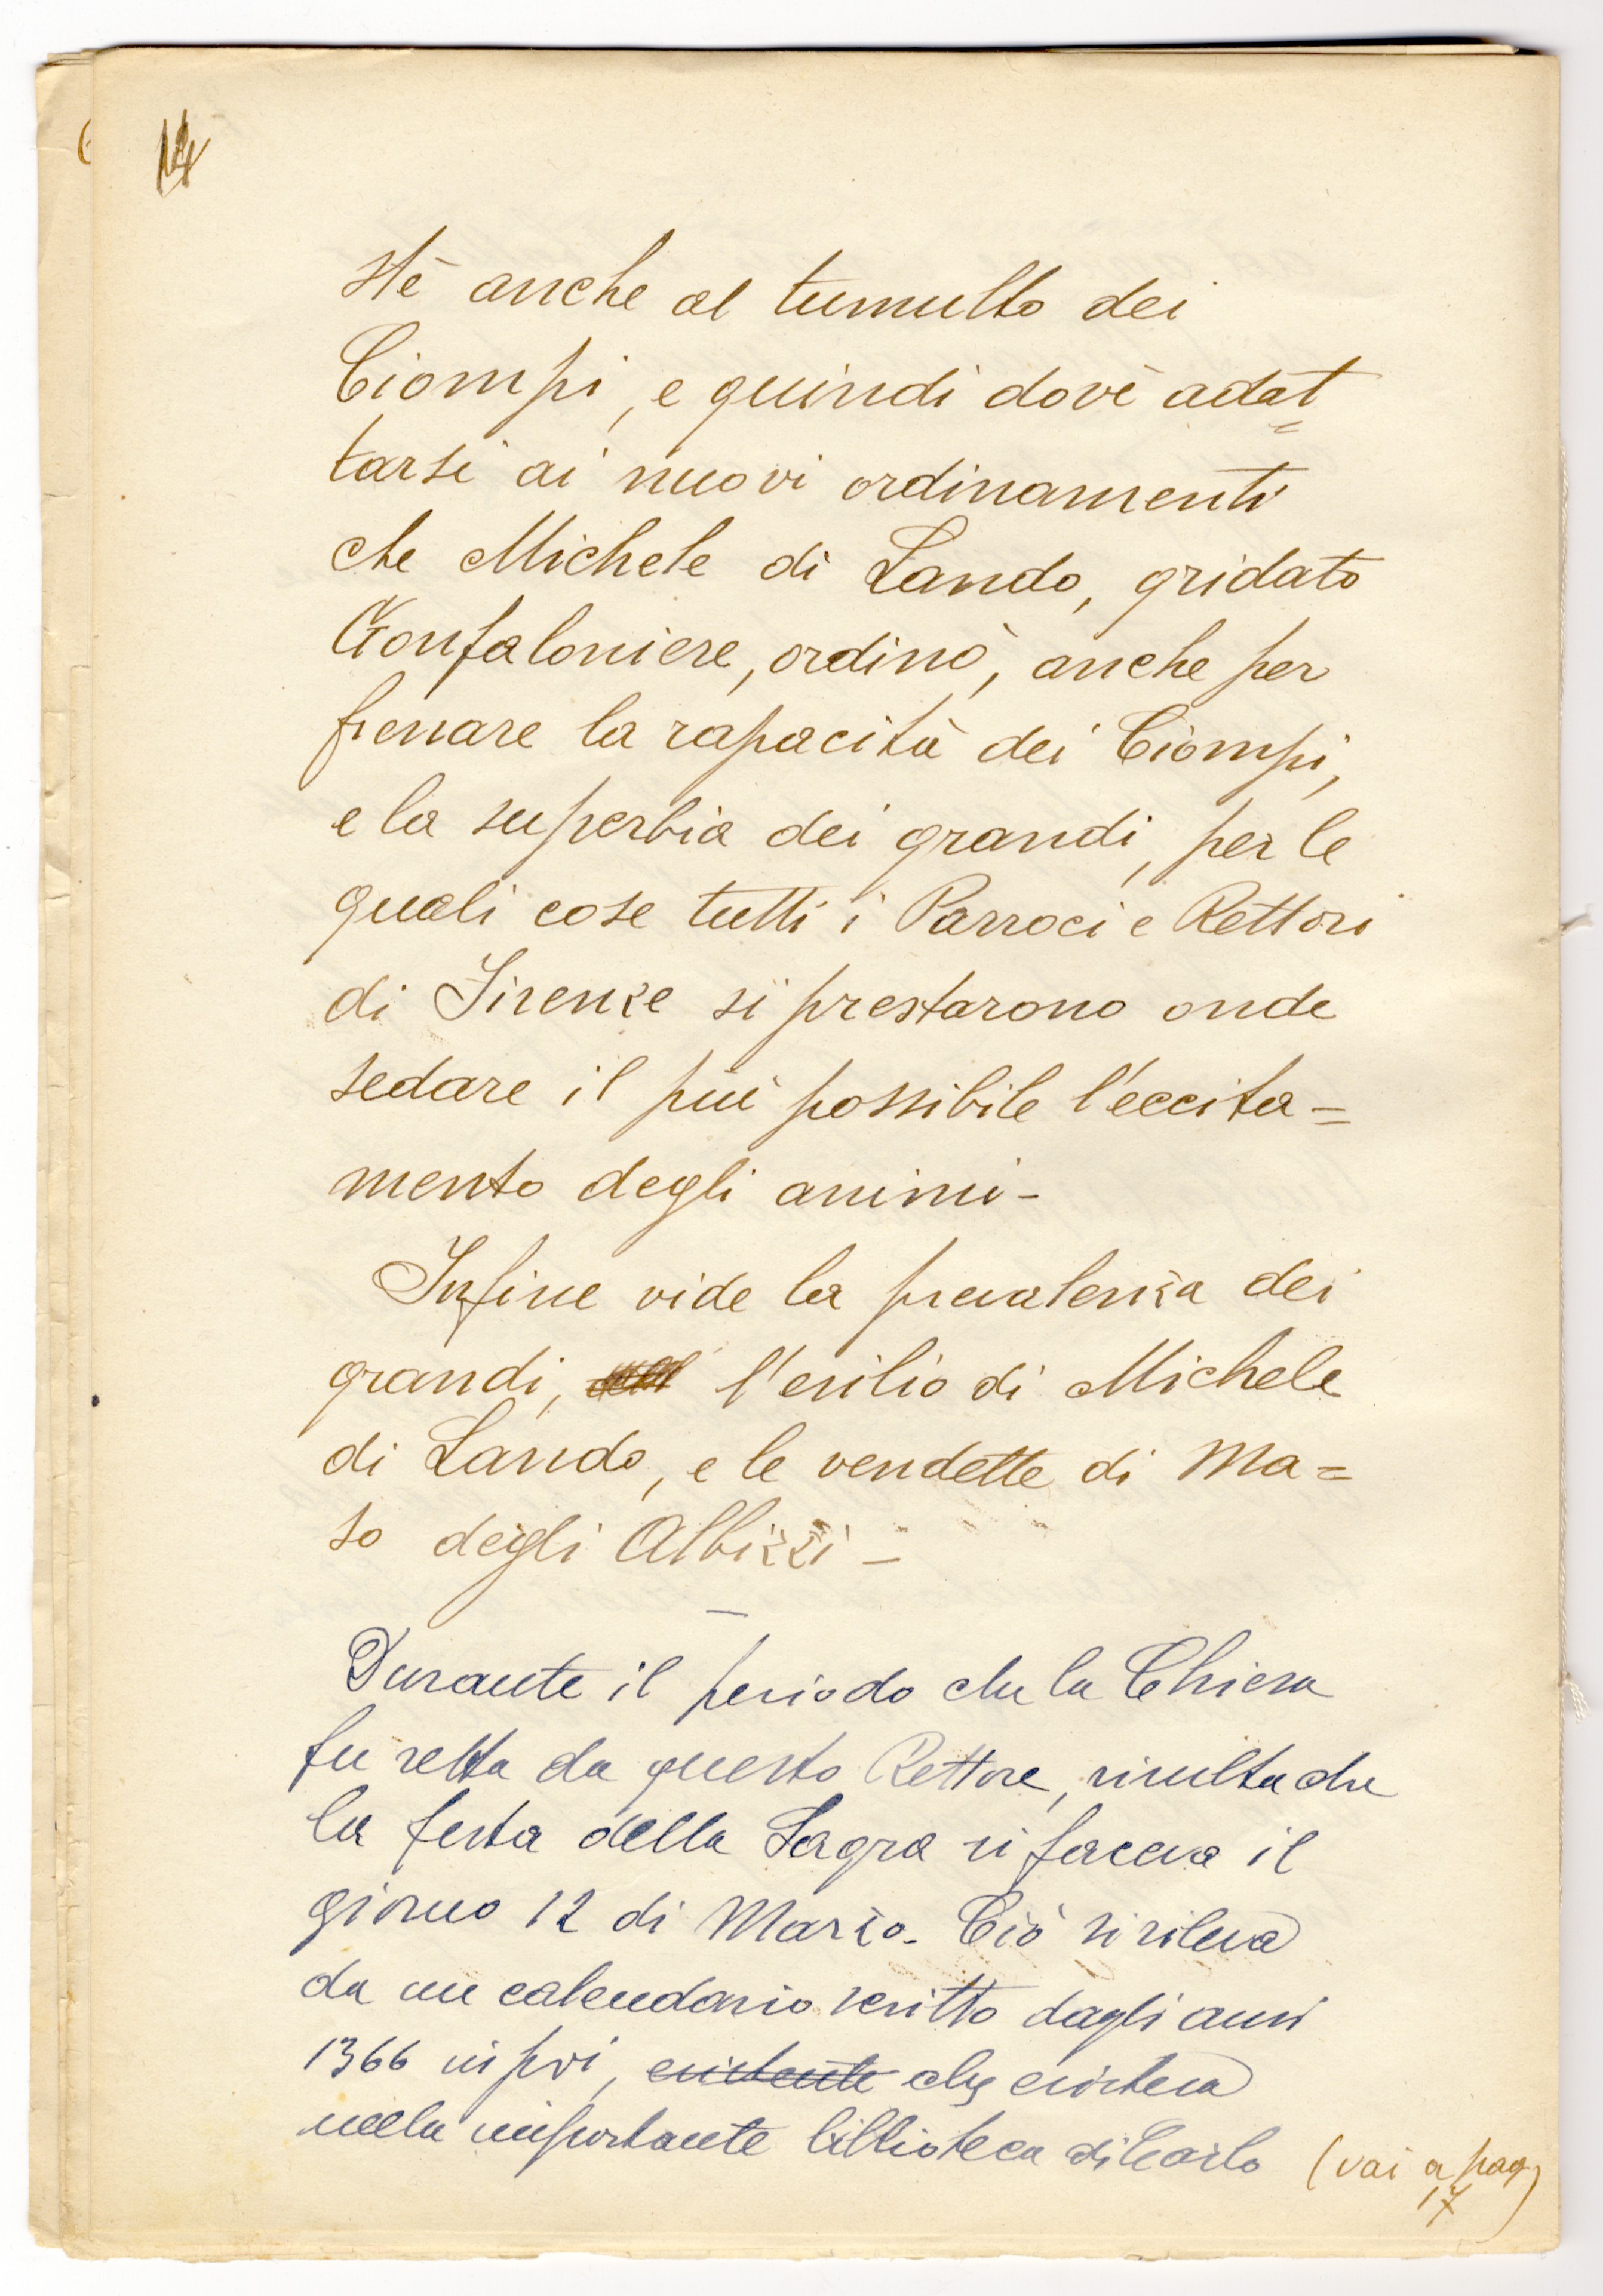 14
stè anche al tumulto dei
Ciompi, e quindi dovè adat=
tarsi ai nuovi ordinamenti
che Michele di Lando, gridato
Gonfaloniere, ordinò, anche per
frenare la rapacità dei Ciompi,
e la superbia dei grandi, per le
quali cose tutti i Parroci e Rettori
di Firenze si prestarono onde
sedare il più possibile l'eccita=
mento degli animi -
Infine vide la prevalenza dei
grandi, l'esilio di Michele
di Lando, e le vendette di Ma=
so degli Albizzi -
Durante il periodo che la Chiesa
fu retta da questo Rettore, risulta che
la festa della Sagra si faceva il
giorno 12 di Marzo. Ciò si rileva
da un calendario scritto dagli anni
1366 in poi, esistente che esisteva
nella importante biblioteca di Carlo
(vai a pag.
17)